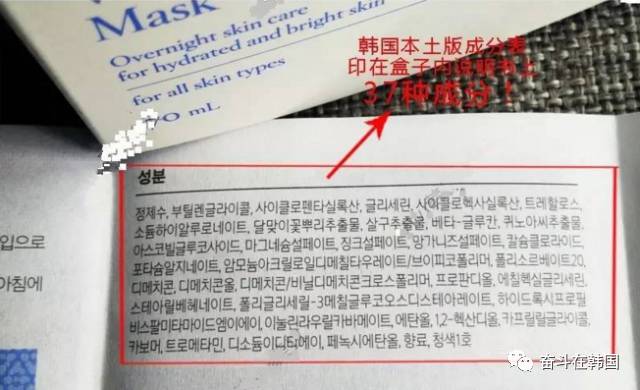 Mask
Overnight skin care
for hydrated and bright skin
for all skin types
mL
韩国本土版成分表
印在盒子内说明书上
37种成分！
성분
정제수, 부틸렌글라이콜, 사이클로펜타실록산, 글리세린, 사이클로헥사실록산, 트레할로스,
소듐하이알루로네이트, 달맞이꽃뿌리추출물, 살구추출물, 베타-글루칸, 퀴노아씨추출물,
아스코빌글루코사이드, 마그네슘설페이트, 징크설페이트, 망가니즈설페이트, 칼슘클로라이드,
포타슘알지네이트, 암모늄아크릴로일디메틸타우레이트/브이피코폴리머, 폴리소르베이트20,
디메치콘, 디메치콘올, 디메치콘/비닐디메치콘크로스폴리머, 프로판디올, 에칠헥실글리세린,
스테아릴베헤네이트, 폴리글리세릴-3메칠글루코오스디스테아레이트, 하이드록시프로필
비스팔미타마이드엠이에이, 이눌린라우릴카바메이트, 에탄올, 1,2-헥산디올, 카프릴릴글라이콜,
카보머, 트로메타민, 디소듐이디티에이, 페녹시에탄올, 향료, 청색1호
입으로
아침에
奋斗在韩国